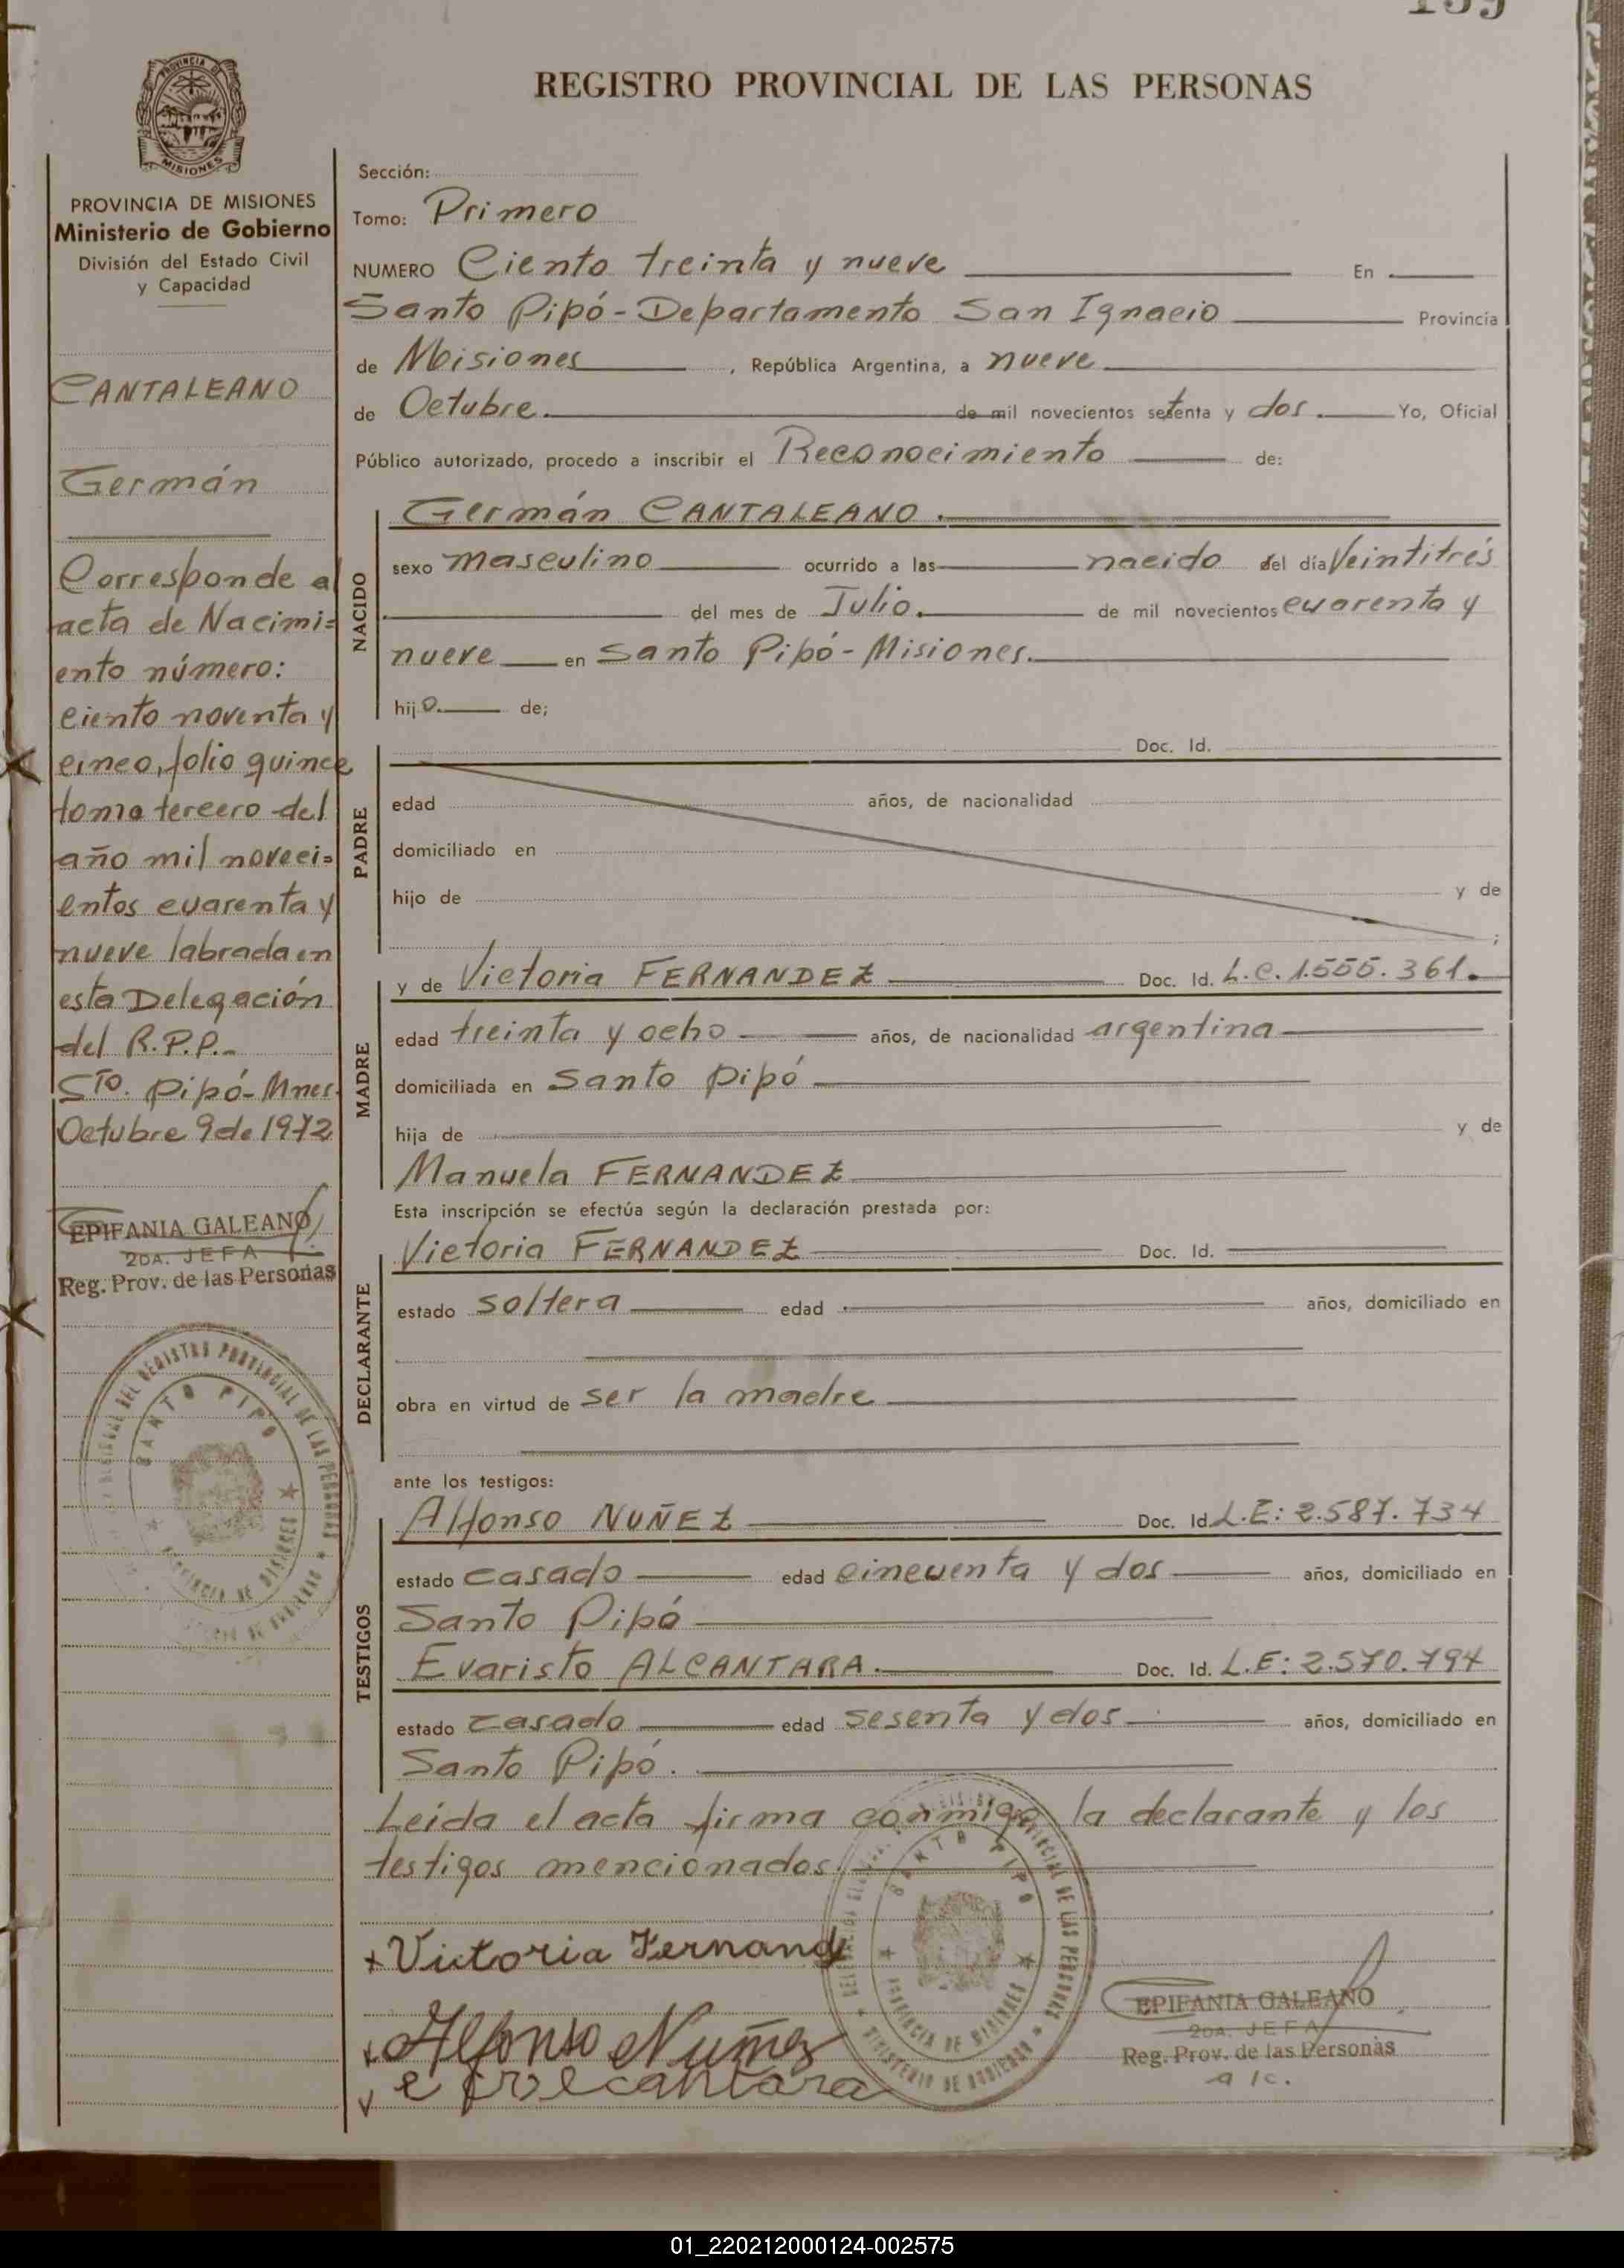 139
REGISTRO PROVINCIAL DE LAS PERSONAS
PROVINCIA DE MISIONES
PROVINCIA DE MISIONES
Ministerio de Gobierno
División del Estado Civil
y Capacidad
CANTALEANO
Germán
Corresponde al
acta de Nacimi=
ento número:
ciento noventa y
cinco, folio quince
tomo tercero del
año mil noveci=
entos cuarenta y
nueve labrada en
esta Delegación
del R.P.P.-
Sto. Pipó-Mnes.
Octubre 9 de 1972
EPIFANIA GALEANO
2DA. JEFA
Reg. Prov. de las Personas
SANTO PIPO
PROVINCIA DE MISIONES
Sección:
Tomo: Primero
NUMERO Ciento treinta y nueve En
Santo Pipó-Departamento San Ignacio Provincia
de Misiones, República Argentina, a nueve
de Octubre. de mil novecientos setenta y dos. Yo, Oficial
Público autorizado, procedo a inscribir el Reconocimiento de:
NACIDO
Germán CANTALEANO.
sexo masculino ocurrido a las nacido del día Veintitrés
del mes de Julio. de mil novecientos cuarenta y
nueve en Santo Pipó-Misiones.
hijo. de;
PADRE
Doc. Id.
edad años, de nacionalidad
domiciliado en
hijo de y de
;
MADRE
y de Victoria FERNANDEZ Doc. Id. L.C. 1.555.361.
edad treinta y ocho años, de nacionalidad argentina
domiciliada en Santo Pipó
hija de y de
Manuela FERNANDEZ
Esta inscripción se efectúa según la declaración prestada por:
DECLARANTE
Victoria FERNANDEZ Doc. Id.
estado soltera edad años, domiciliado en
obra en virtud de ser la madre
ante los testigos:
TESTIGOS
Alfonso NUÑEZ Doc. Id. L.E: 2.587.734
estado casado edad cincuenta y dos años, domiciliado en
Santo Pipó
Evaristo ALCANTARA. Doc. Id. L.E: 2.570.794
estado casado edad sesenta y dos años, domiciliado en
Santo Pipó.
Leída el acta firma conmigo la declarante y los
testigos mencionados.
SANTO PIPO
PROVINCIA DE MISIONES
MINISTERIO DE GOBIERNO
x Victoria Fernand
x Alfonso Nuñez
EPIFANIA GALEANO
2DA. JEFA
Reg. Prov. de las Personas
a/c.
01_220212000124-002575